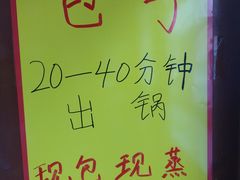 包子
20—40分钟
出锅
现包现蒸